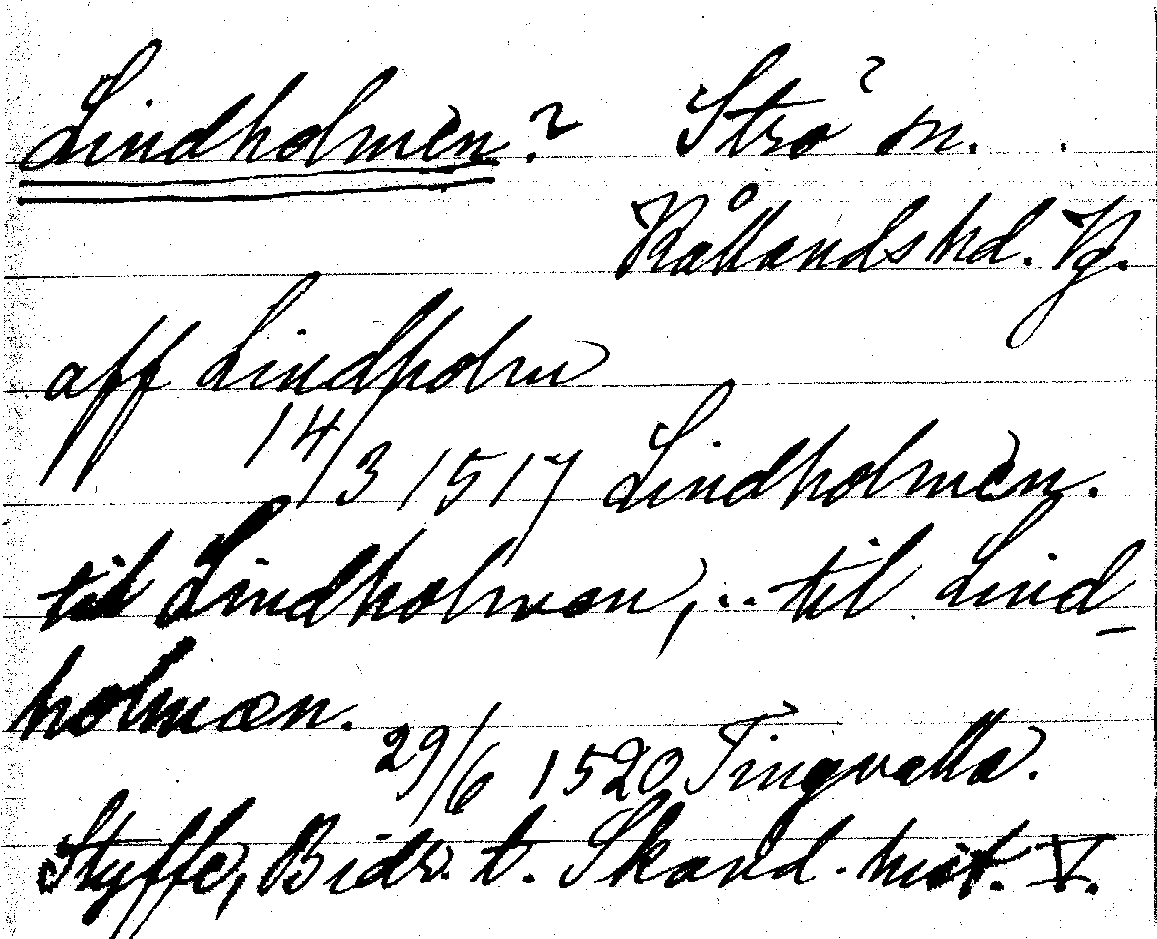 Lindholmen? Strö sn.
Kållands hd. Vg.
aff Lindholm
14/3 1517 Lindholmen.
till Lindholmen, .. til Lind-
holmæn.
29/6 1520 Tingvalla.
Styffe, Bidr. t. Skand. hist. V.